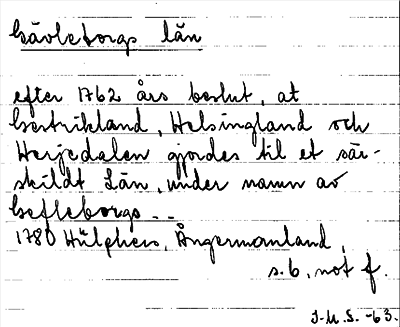 Gävleborgs län
efter 1762 års beslut, at
Gestrikland, Helsingland och
Herjedalen gjordes til et sär-
skildt Län, under namn av
Gefleborgs--
1780 Hülphers, Ångermanland,
s. 6, not f.
I.M.S. -63.